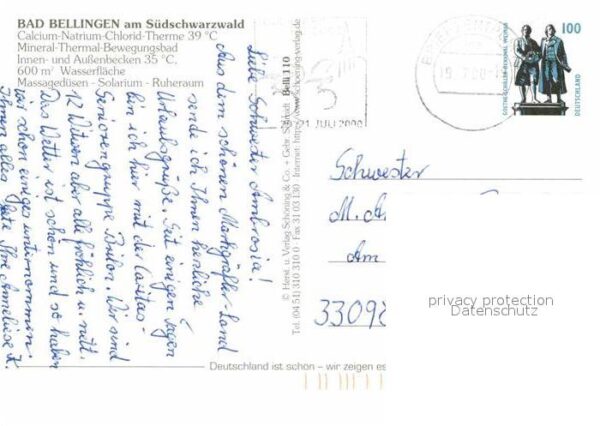 BAD BELLINGEN am Südschwarzwald
Calcium-Natrium-Chlorid-Therme 39 °C
Mineral-Thermal-Bewegungsbad
Innen- und Außenbecken 35 °C,
600 m² Wasserfläche
Massagedüsen - Solarium - Ruheraum
Liebe Schwester Ambrosia!
Aus dem schönen Markgräfler-Land
sende ich Ihnen herzliche
Urlaubsgrüße. Seit einigen Tagen
bin ich hier mit der Caritas-
Seniorengruppe Brilon. Wir sind
12 Witwen aber alle fröhlich u. nett.
Das Wetter ist schön und so haben
wir schon einiges unternommen.
Ihnen alles Gute Ihre Anneliese K.
© Herst. u. Verlag Schöning & Co. + Gebr. Schmidt
Tel. (04 51) 310 310 0 · Fax 31 03 130
Belli 110
Internet: http://www.schoening-verlag.de
21 JULI 2000
100
GOETHE-SCHILLER-DENKMAL WEIMAR
DEUTSCHLAND
Schwester
M. A
Am
33098
privacy protection
Datenschutz
Deutschland ist schön – wir zeigen es